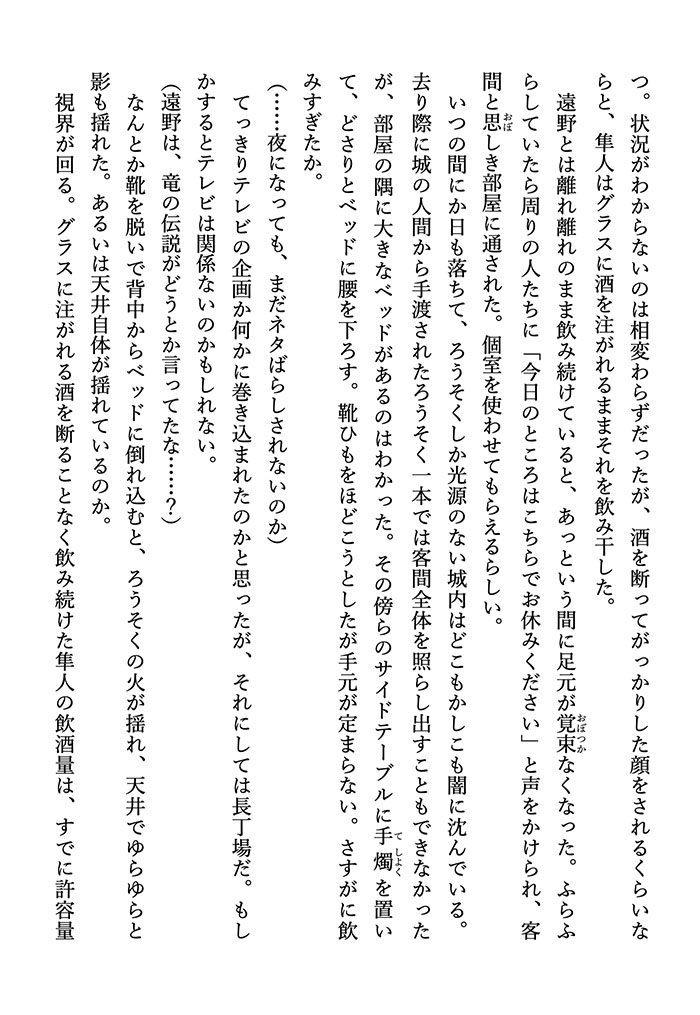 つ。状況がわからないのは相変わらずだったが、酒を断ってがっかりした顔をされるくらいな
らと、隼人はグラスに酒を注がれるままそれを飲み干した。
　遠野とは離れ離れのまま飲み続けていると、あっという間に足元が覚束なくなった。ふらふ
らしていたら周りの人たちに「今日のところはこちらでお休みください」と声をかけられ、客
間と思しき部屋に通された。個室を使わせてもらえるらしい。
　いつの間にか日も落ちて、ろうそくしか光源のない城内はどこもかしこも闇に沈んでいる。
去り際に城の人間から手渡されたろうそく一本では客間全体を照らし出すこともできなかった
が、部屋の隅に大きなベッドがあるのはわかった。その傍らのサイドテーブルに手燭を置い
て、どさりとベッドに腰を下ろす。靴ひもをほどこうとしたが手元が定まらない。さすがに飲
みすぎたか。
（……夜になっても、まだネタばらしされないのか）
　てっきりテレビの企画か何かに巻き込まれたのかと思ったが、それにしては長丁場だ。もし
かするとテレビは関係ないのかもしれない。
（遠野は、竜の伝説がどうとか言ってたな……？）
　なんとか靴を脱いで背中からベッドに倒れ込むと、ろうそくの火が揺れ、天井でゆらゆらと
影も揺れた。あるいは天井自体が揺れているのか。
　視界が回る。グラスに注がれる酒を断ることなく飲み続けた隼人の飲酒量は、すでに許容量